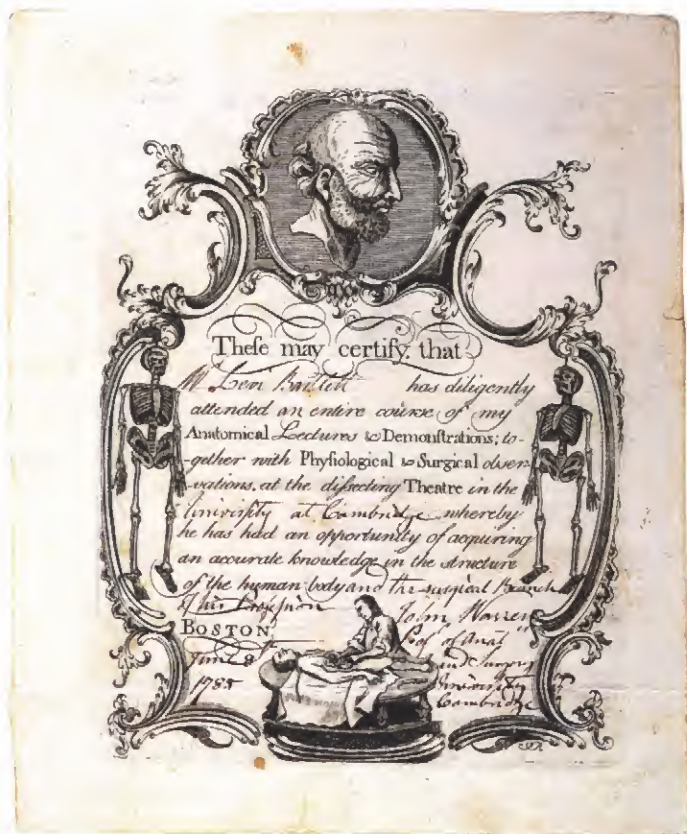 Theſe may certify, that
Mr. Lem Bartlett has diligently
attended an entire course of my
Anatomical Lectures & Demonstrations; to-
-gether with Phyſiological & Surgical obser-
-vations, at the diſsecting Theatre in the
Univerſity at Cambridge whereby
he has had an opportunity of acquiring
an accurate knowledge in the structure
of the human body and the surgical Branch
of his Profeſsion John Warren
BOSTON, Prof. of Anat
June 8 and Surgery
1785 University
Cambridge